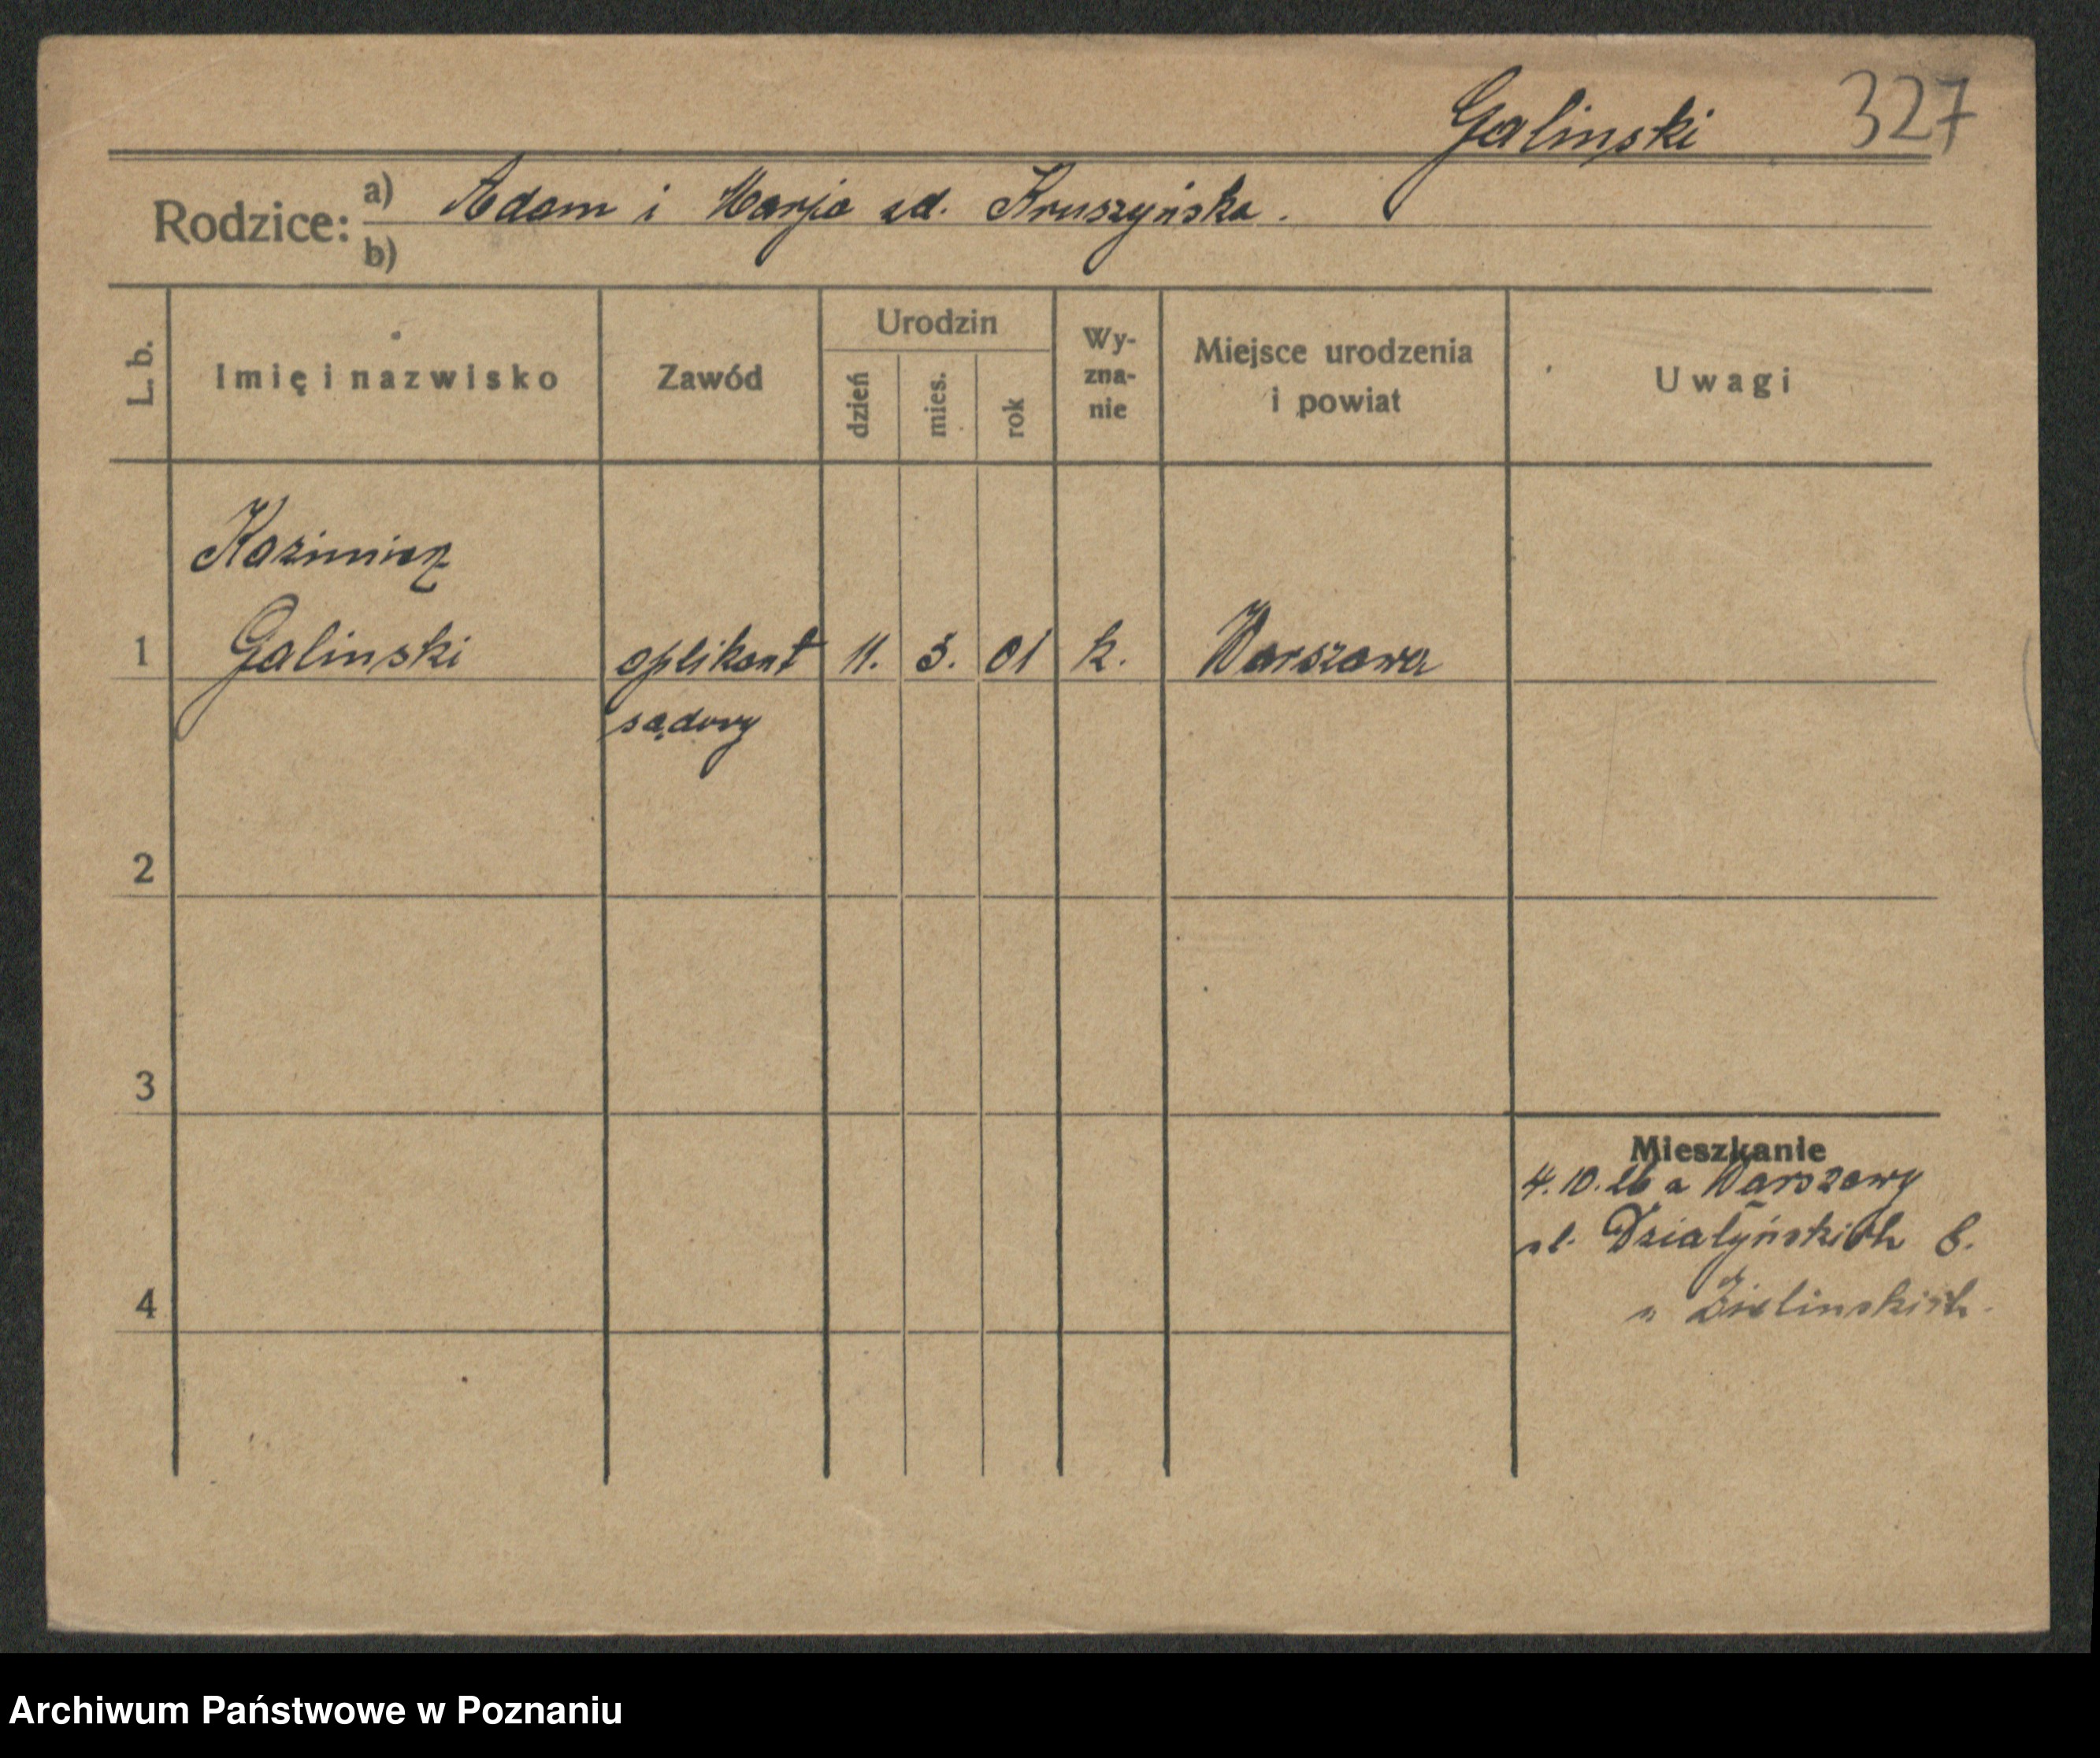 Galinski 327
Rodzice: a) Adam i Marja zd. Kruszyńska.
b)
L. b. Imię i nazwisko Zawód Urodzin dzień mies. rok Wy- zna- nie Miejsce urodzenia i powiat Uwagi
Kazimierz
1 Galinski aplikant 11. 3. 01 k. Warszawa
sądowy
2
3
Mieszkanie
4. 10. 26 z Warszawy
Działyńskich 8.
4 " Zielinskich.
Archiwum Państwowe w Poznaniu